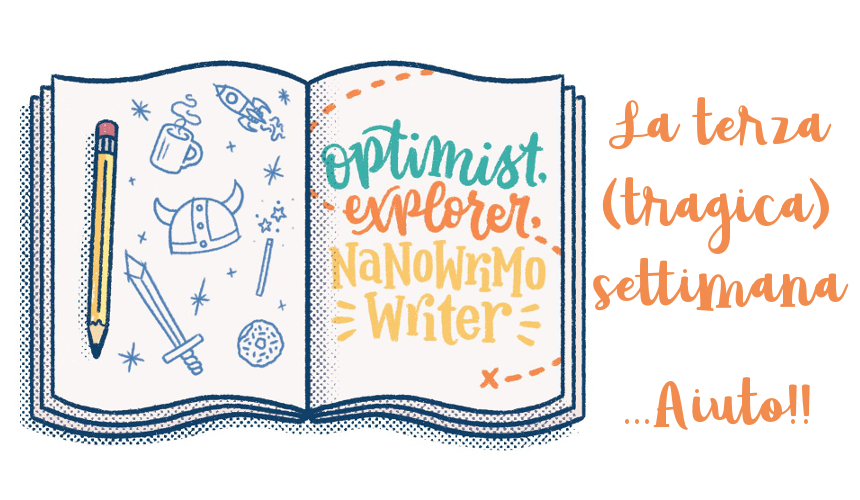 optimist,
explorer,
NaNoWriMo
Writer
La terza
(tragica)
settimana
...Aiuto!!